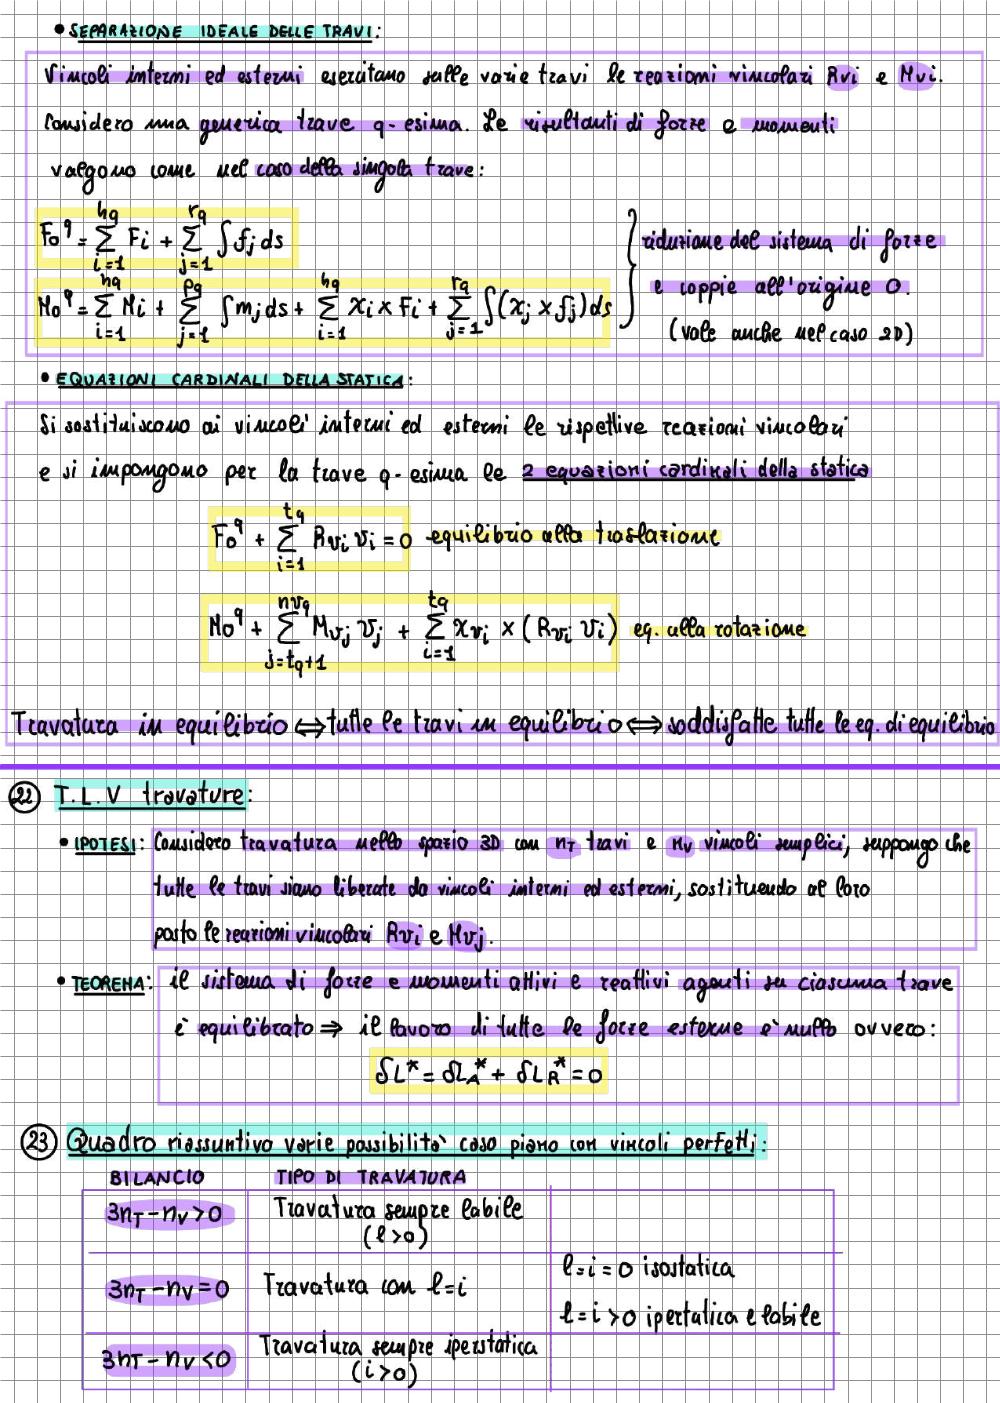 • SEPARAZIONE IDEALE DELLE TRAVI:
Vincoli interni ed esterni esercitano sulle varie travi le reazioni vincolari Rvi e Mvi.
Considero una generica trave q-esima. Le risultanti di forze e momenti
valgono come nel caso della singola trave:
F₀^q = Σ_{i=1}^{hq} Fi + Σ_{j=1}^{rq} ∫ fj ds
M₀^q = Σ_{i=1}^{nq} Mi + Σ_{j=1}^{pq} ∫ mj ds + Σ_{i=1}^{hq} xi × Fi + Σ_{j=1}^{rq} ∫ (xj × fj) ds
riduzione del sistema di forze
e coppie all'origine O.
(vale anche nel caso 2D)
• EQUAZIONI CARDINALI DELLA STATICA:
Si sostituiscono ai vincoli interni ed esterni le rispettive reazioni vincolari
e si impongono per la trave q-esima le 2 equazioni cardinali della statica
F₀^q + Σ_{i=1}^{tq} Rvi vi = 0 equilibrio alla traslazione
M₀^q + Σ_{j=tq+1}^{nvq} Mvj vj + Σ_{i=1}^{tq} xvi × (Rvi vi) eq. alla rotazione
Travatura in equilibrio ⇔ tutte le travi in equilibrio ⇔ soddisfatte tutte le eq. di equilibrio
22 T.L.V travature:
• IPOTESI: Considero travatura nello spazio 3D con nT travi e nv vincoli semplici, suppongo che
tutte le travi siano liberate da vincoli interni ed esterni, sostituendo al loro
posto le reazioni vincolari Rvi e Mvj.
• TEOREMA: il sistema di forze e momenti attivi e reattivi agenti su ciascuna trave
è equilibrato ⇒ il lavoro di tutte le forze esterne è nullo ovvero:
δL* = δLA* + δLR* = 0
23 Quadro riassuntivo varie possibilità caso piano con vincoli perfetti:
BILANCIO TIPO DI TRAVATURA
3nT - nv > 0 Travatura sempre labile
(l>0)
3nT - nv = 0 Travatura con l=i
l=i=0 isostatica
l=i>0 ipertatica e labile
3nT - nv < 0 Travatura sempre iperstatica
(i>0)